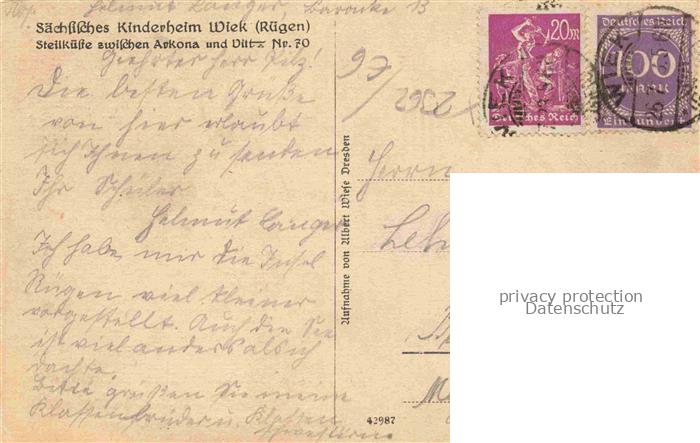 Helmut Langer, Baracke 13
Sächsisches Kinderheim Wiek (Rügen)
Steilküste zwischen Arkona und Vitt Nr. 70
Geehrter Herr Pilz!
Die besten Grüße
von hier erlaubt
sich Ihnen zu senden
Ihr Schüler
Helmut Langer
Ich habe mir die Insel
Rügen viel kleiner
vorgestellt. Auch die See
ist viel anders als ich
dachte.
Bitte grüßen Sie meine
Klassenbrüder u. Klassen
schwestern
Aufnahme von Albert Wiese Dresden
42987
20m
Deutsches Reich
Deutsches Reich
100
Mark
Einhundert
Herrn
privacy protection
Datenschutz